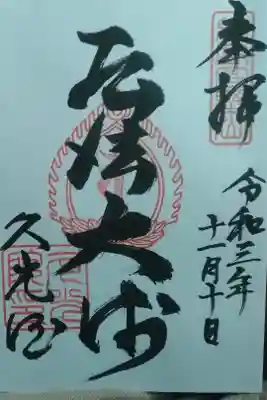 奉拝
令和三年
十一月十日
弘法大師
久光院